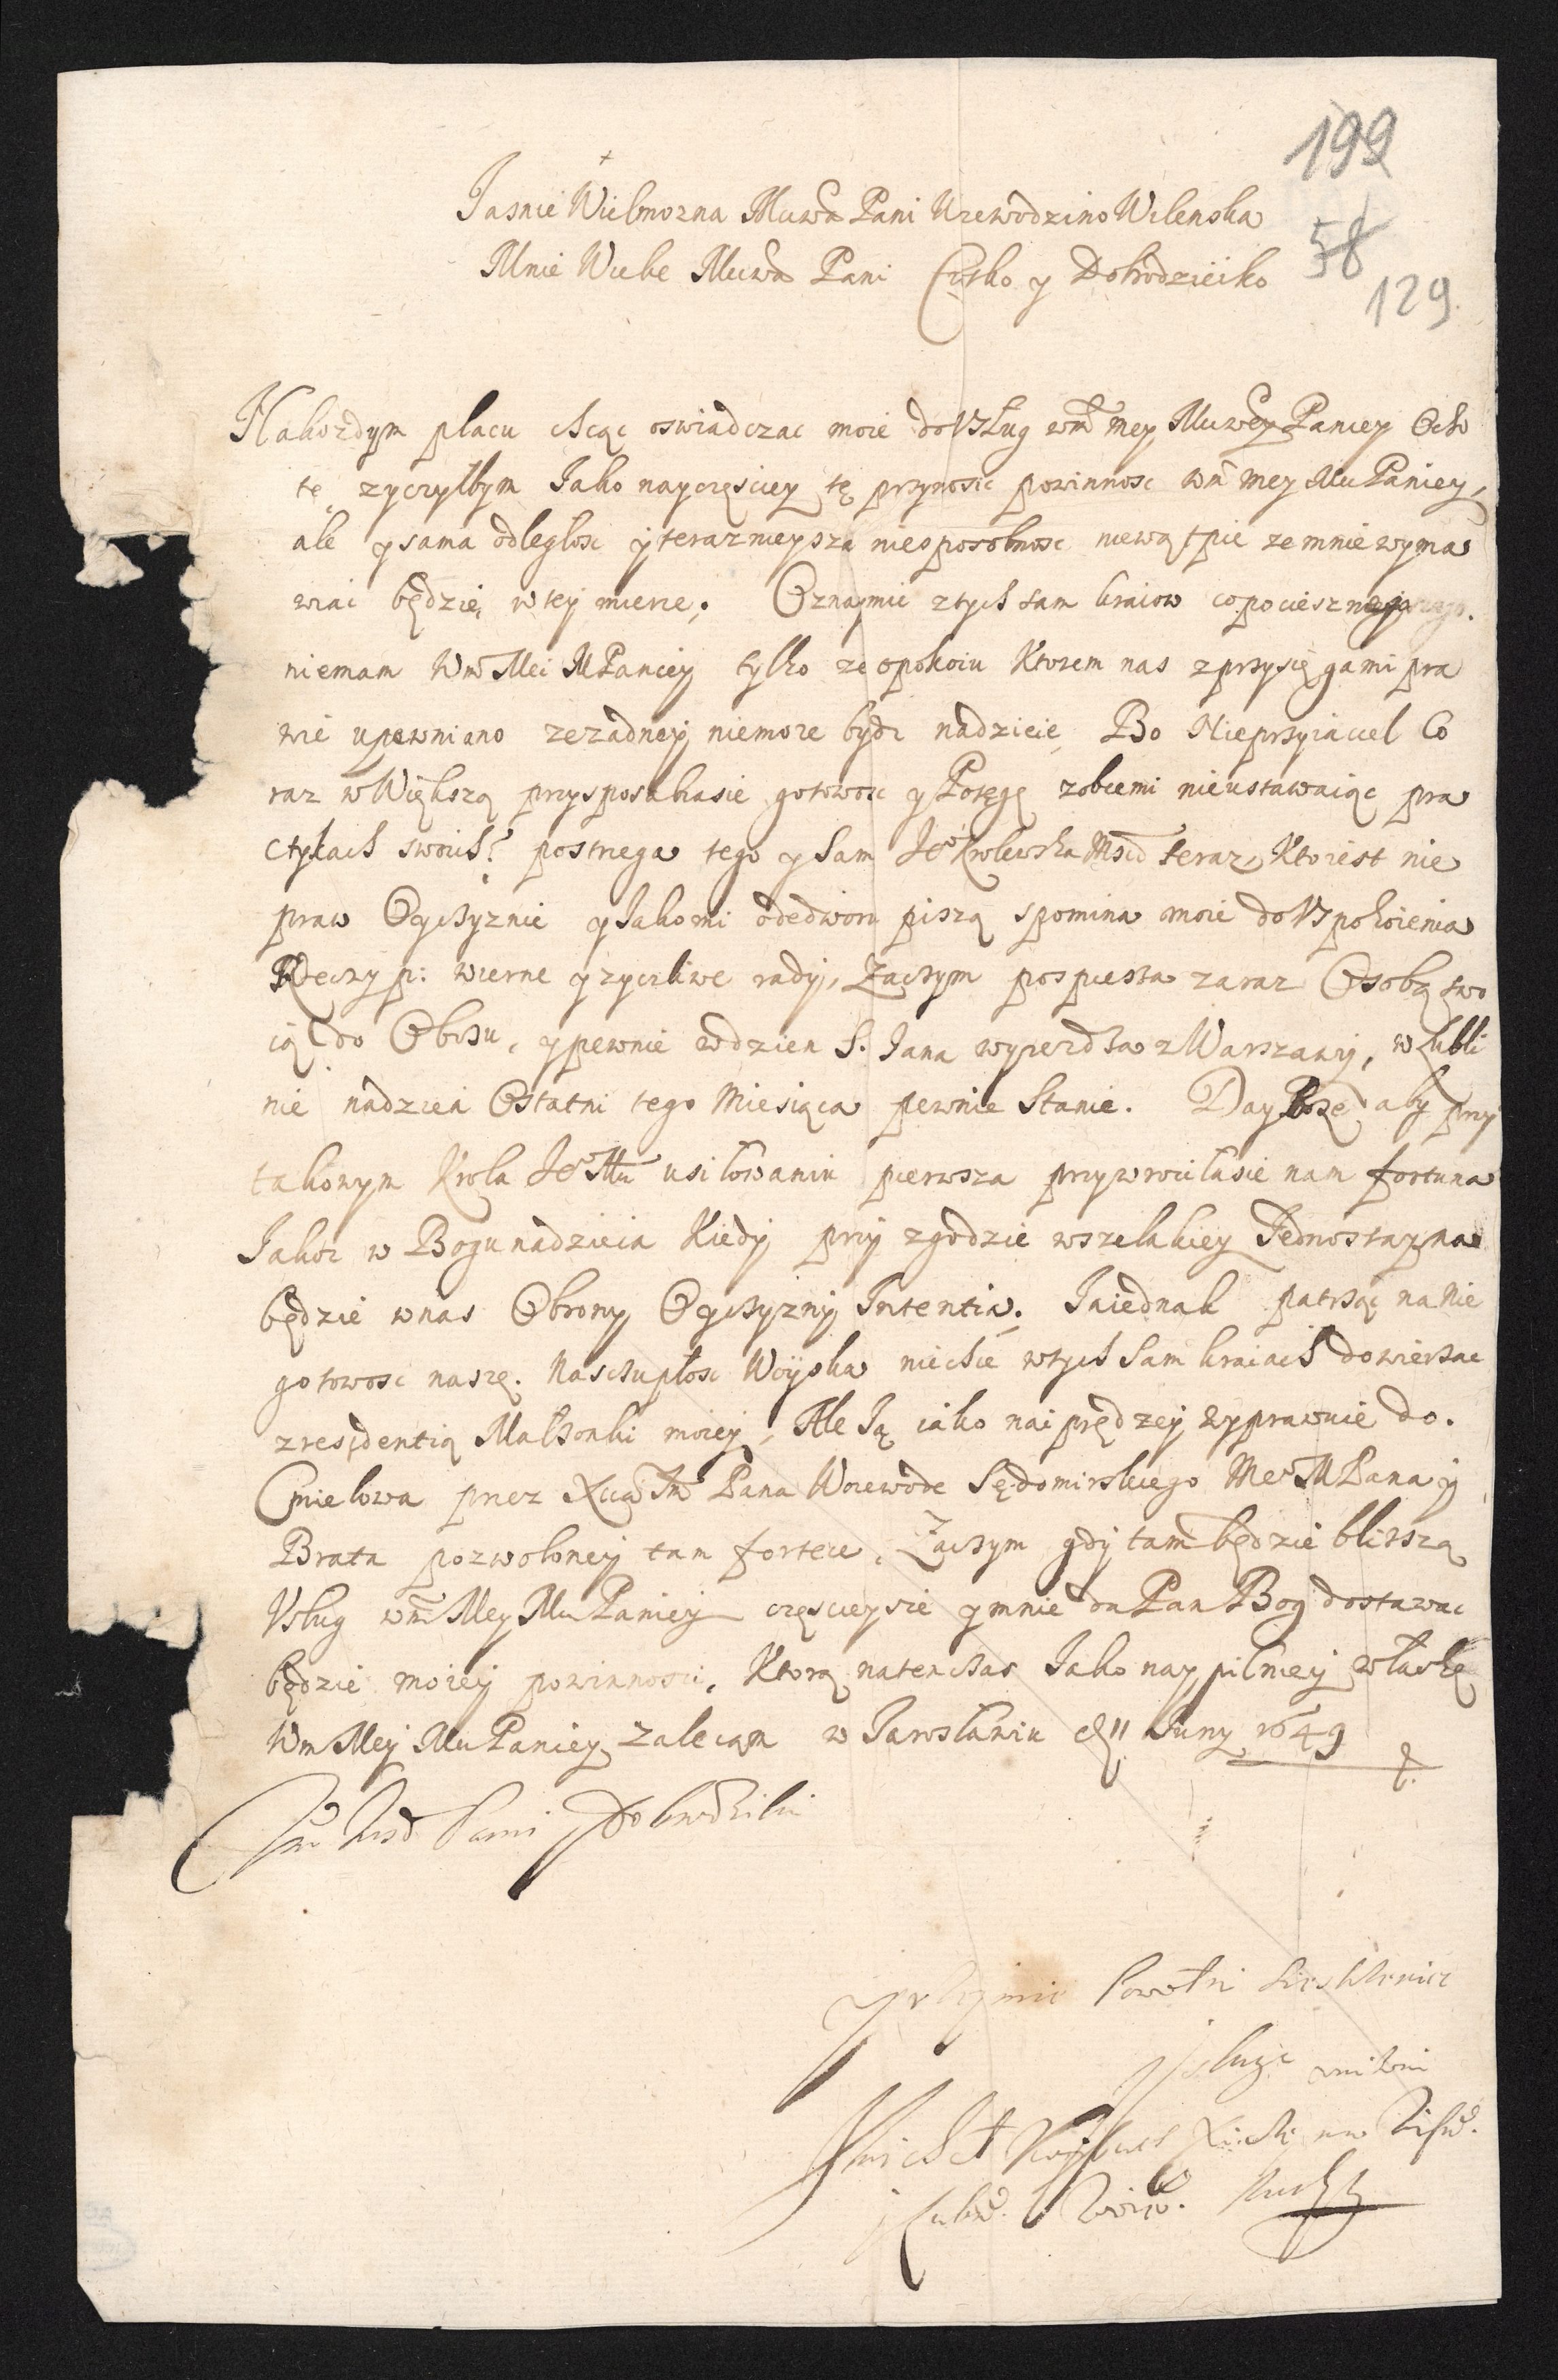 199
58
129
Jasnie Wielmozna Mciwa Pani Woiewodzino Wilenska
Mnie Wielce Mciwa Pani Ciotko y Dobrodzieiko
Nakozdym placu chcąc oswiadczac moie do Usług wm mey Mciwey Paniey Ocho
tę zyczyłbym Jako nayczęsciey tę przynosic powinnosc wm mey Mci Paniey,
ale y sama odległosc y teraznieysza niesposobnosc niewątpie ze mnie wyma
wiac będzie w tey mierze. Oznaymic z tych sam kraiow co pociesznieyszego
niemam Wm Mci MPaniey tylko ze o pokoiu Ktorem nas z przysięgami pra
wie upewniano ze zadney niemoze bydz nadzieie Bo Nieprzyiaciel Co
raz w Większą przysposabiasie gotowosc y Potęgę zobcemi nieustawaiąc pra
ctykach swoich: postrzega tego y Sam Je° Krolewska Mscz teraz Ktoiest nie
praw Oyczyznie y Jako mi ode dworu piszą spomina moie do Uspokoienia
Rzeczy p: wierne y zyczliwe rady, Zaczym pospiesza zaraz Osobą swo
ią do Obozu, y pewnie w dzien S. Jana wyiezdza z Warszawy, w Lubli
nie na dzien Ostatni tego Miesiąca pewnie Stanie. Day Boze aby przy
takowym Krola Je° Mci usiłowaniu pierwsza przywrocilasie nam fortuna
Jakoz w Bogu nadzieia Kiedy przy zgodzie wszelakiey Jednostayna
będzie w nas Obrony Oyczyzny Intentia. Ja iednak patrząc na nie
gotowosc naszę. Na szczupłosc Woyska niechcę w tych sam kraiach dowierzac
z residentią Małzonki moiey, Ale Ją iako nai prędzey wyprawuie do
Cmielowa przez Xcia Jm Pana Woiewode Sędomirskiego Me° MPana y
Brata pozwoloney tam fortece, Zaczym gdy tam będzie bliższą
Usług wm Mey Mci Paniey częsciey sie y mnie da Pan Bog dostawac
będzie moiey powinnosci, Ktorą natenczas Jako naypilniey w łaskę
Wm Mey Mci Paniey zalecam w Jarosławiu d 11 Juny 1649
Pani Dobrodziki
Powolni Siestrzenicz
y sługa unizoni
Xiąże na